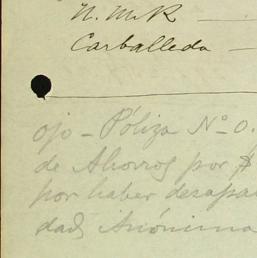 N. M. R
Carballeda
ojo - Póliza Nº 0.
de Ahorros por $
por haber desapa
dad Anónima